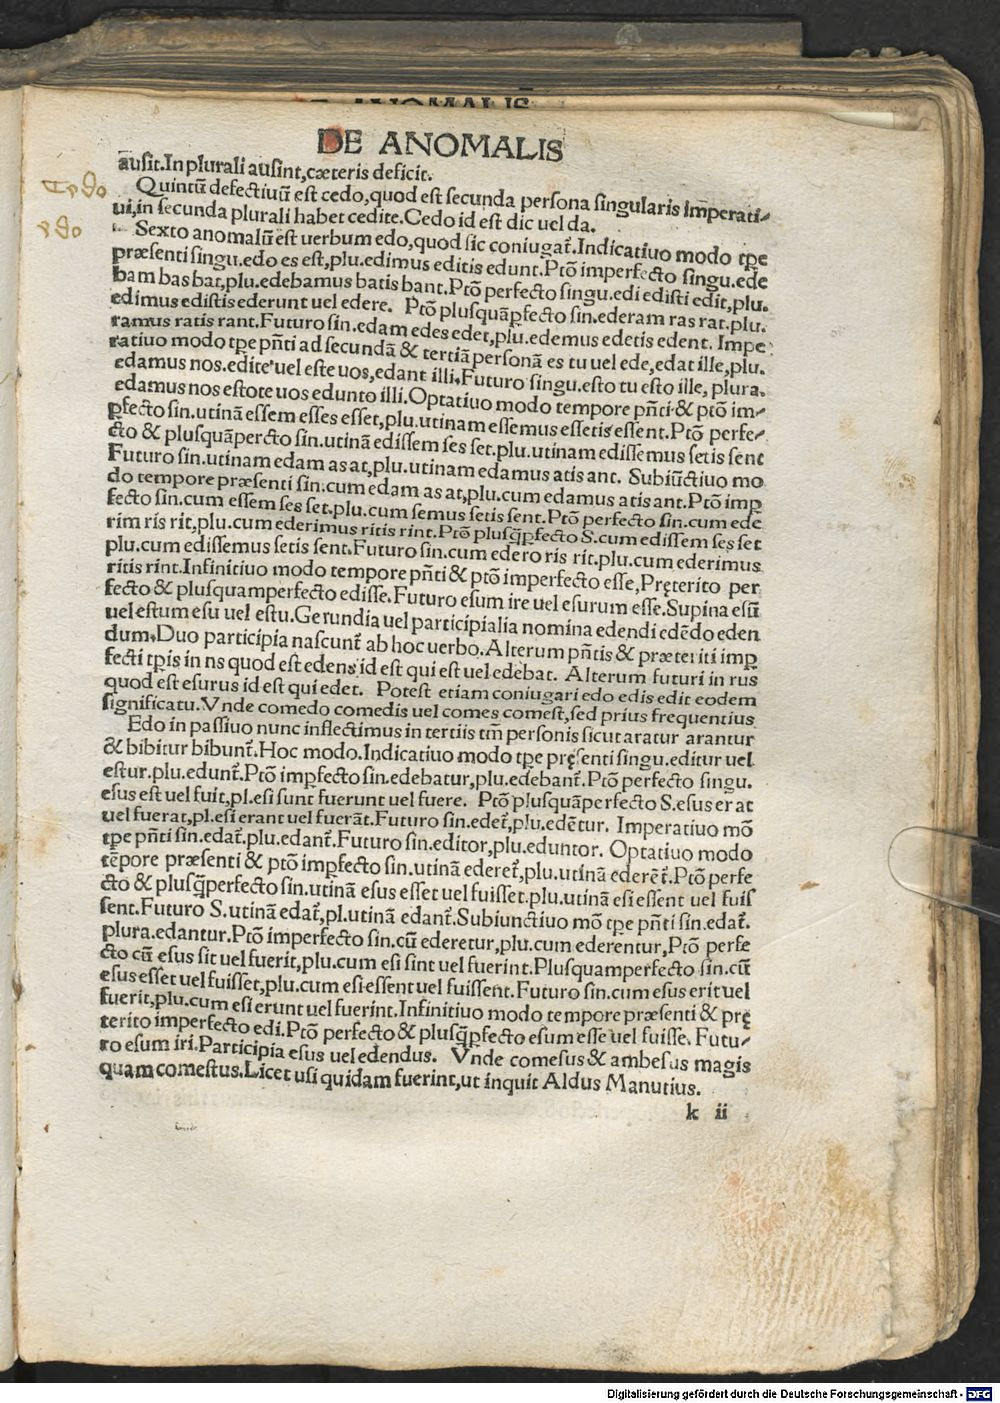 DE ANOMALIS
ausit.In plurali ausint,cæteris deficit.
Cedo
Quintũ defectiuũ est cedo,quod est secunda persona singularis imperati⸗
ui,in secunda plurali habet cedite.Cedo id est dic uel da.
edo
Sexto anomalũ est uerbum edo,quod sic coniugat᷑.Indicatiuo modo tp̃e
præsenti singu.edo es est,plu.edimus editis edunt.Ptõ imperfecto singu.ede
bam bas bat,plu.edebamus batis bant.Ptõ perfecto singu.edi edisti edit,plu.
edimus edistis ederunt uel edere. Ptõ plusquãꝑfecto sin.ederam ras rat.plu.
ramus ratis rant.Futuro sin.edam edes edet,plu.edemus edetis edent. Impe
ratiuo modo tp̃e pñti ad secundã & tertiã personã es tu uel ede,edat ille,plu.
edamus nos.edite uel este uos,edant illi.Futuro singu.esto tu esto ille, plura.
edamus nos estote uos edunto illi.Optatiuo modo tempore pñti & ptõ im⸗
ꝑfecto sin.utinã essem esses esset,plu.utinam essemus essetis essent.Ptõ perfe⸗
cto & plusquãpercto sin.utinã edissem ses set.plu.utinam edissemus setis sent
Futuro sin.utinam edam as at,plu.utinam edamus atis ant. Subiũctiuo mo
do tempore præsenti sin.cum edam as at,plu.cum edamus atis ant.Ptõ imꝑ
fecto sin.cum essem ses set.plu.cum semus setis sent.Ptõ perfecto sin.cum ede
rim ris rit,plu.cum ederimus ritis rint.Ptõ plusq̃ꝑfecto S.cum edissem ses set
plu.cum edissemus setis sent.Futuro sin.cum edero ris rit.plu.cum ederimus
ritis rint.Infinitiuo modo tempore pñti & ptõ imperfecto esse,Pręterito per
fecto & plusquamperfecto edisse.Futuro esum ire uel esurum esse.Supina esũ
uel estum esu uel estu.Gerundia uel participialia nomina edendi edẽdo eden
dum.Duo participia nascunt᷑ ab hoc uerbo.Alterum pñtis & præteriti imꝑ
fecti tp̃is in ns quod est edens id est qui est uel edebat. Alterum futuri in rus
quod est esurus id est qui edet. Potest etiam coniugari edo edis edit eodem
significatu.Vnde comedo comedis uel comes comest,sed prius frequentius
Edo in passiuo nunc inflectimus in tertiis tm̃ personis sicut aratur arantur
& bibitur bibunt᷑.Hoc modo.Indicatiuo modo tp̃e pręsenti singu.editur uel
estur.plu.edunt᷑.Ptõ imꝑfecto sin.edebatur,plu.edebant᷑.Ptõ perfecto singu.
esus est uel fuit,pl.esi sunt fuerunt uel fuere. Ptõ plusquãperfecto S.esus erat
uel fuerat,pl.esi erant uel fuerãt.Futuro sin.edet᷑,plu.edẽtur. Imperatiuo mõ
tp̃e pñti sin.edat᷑.plu.edant᷑.Futuro sin.editor,plu.eduntor. Optatiuo modo
tẽpore præsenti & ptõ imꝑfecto sin.utinã ederet᷑,plu.utinã ederẽt᷑.Ptõ perfe
cto & plusq̃perfecto sin.utinã esus esset uel fuisset.plu.utinã esi essent uel fuis
sent.Futuro S.utinã edat᷑,pl.utinã edant᷑.Subiunctiuo mõ tp̃e pñti sin.edat᷑.
plura.edantur.Ptõ imperfecto sin.cũ ederetur,plu.cum ederentur,Ptõ perfe
cto cũ esus sit uel fuerit,plu.cum esi sint uel fuerint.Plusquamperfecto sin.cũ
esus esset uel fuisset,plu.cum esi essent uel fuissent.Futuro sin.cum esus erit uel
fuerit,plu.cum esi erunt uel fuerint.Infinitiuo modo tempore præsenti & prę
terito imperfecto edi.Ptõ perfecto & plusq̃ꝑfecto esum esse uel fuisse. Futu⸗
ro esum iri.Participia esus uel edendus. Vnde comesus & ambesus magis
quam comestus.Licet usi quidam fuerint,ut inquit Aldus Manutius.
k ii
Digitalisierung gefördert durch die Deutsche Forschungsgemeinschaft - DFG